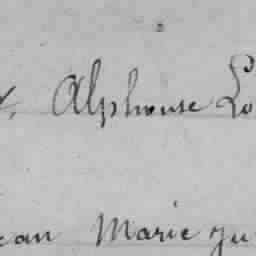 Alphonse Lo
ean Marie